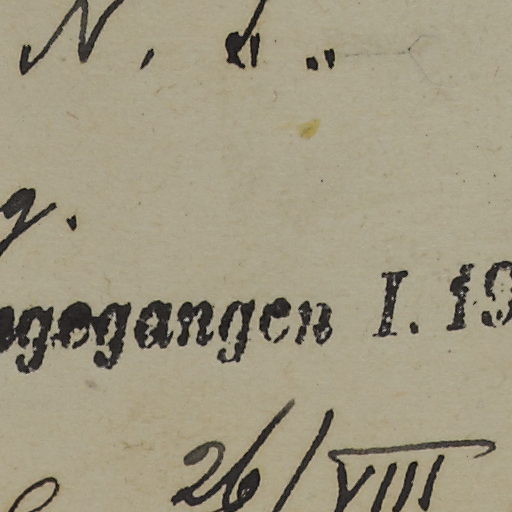 N.
g.
ngegangen I. 19
26/VIII